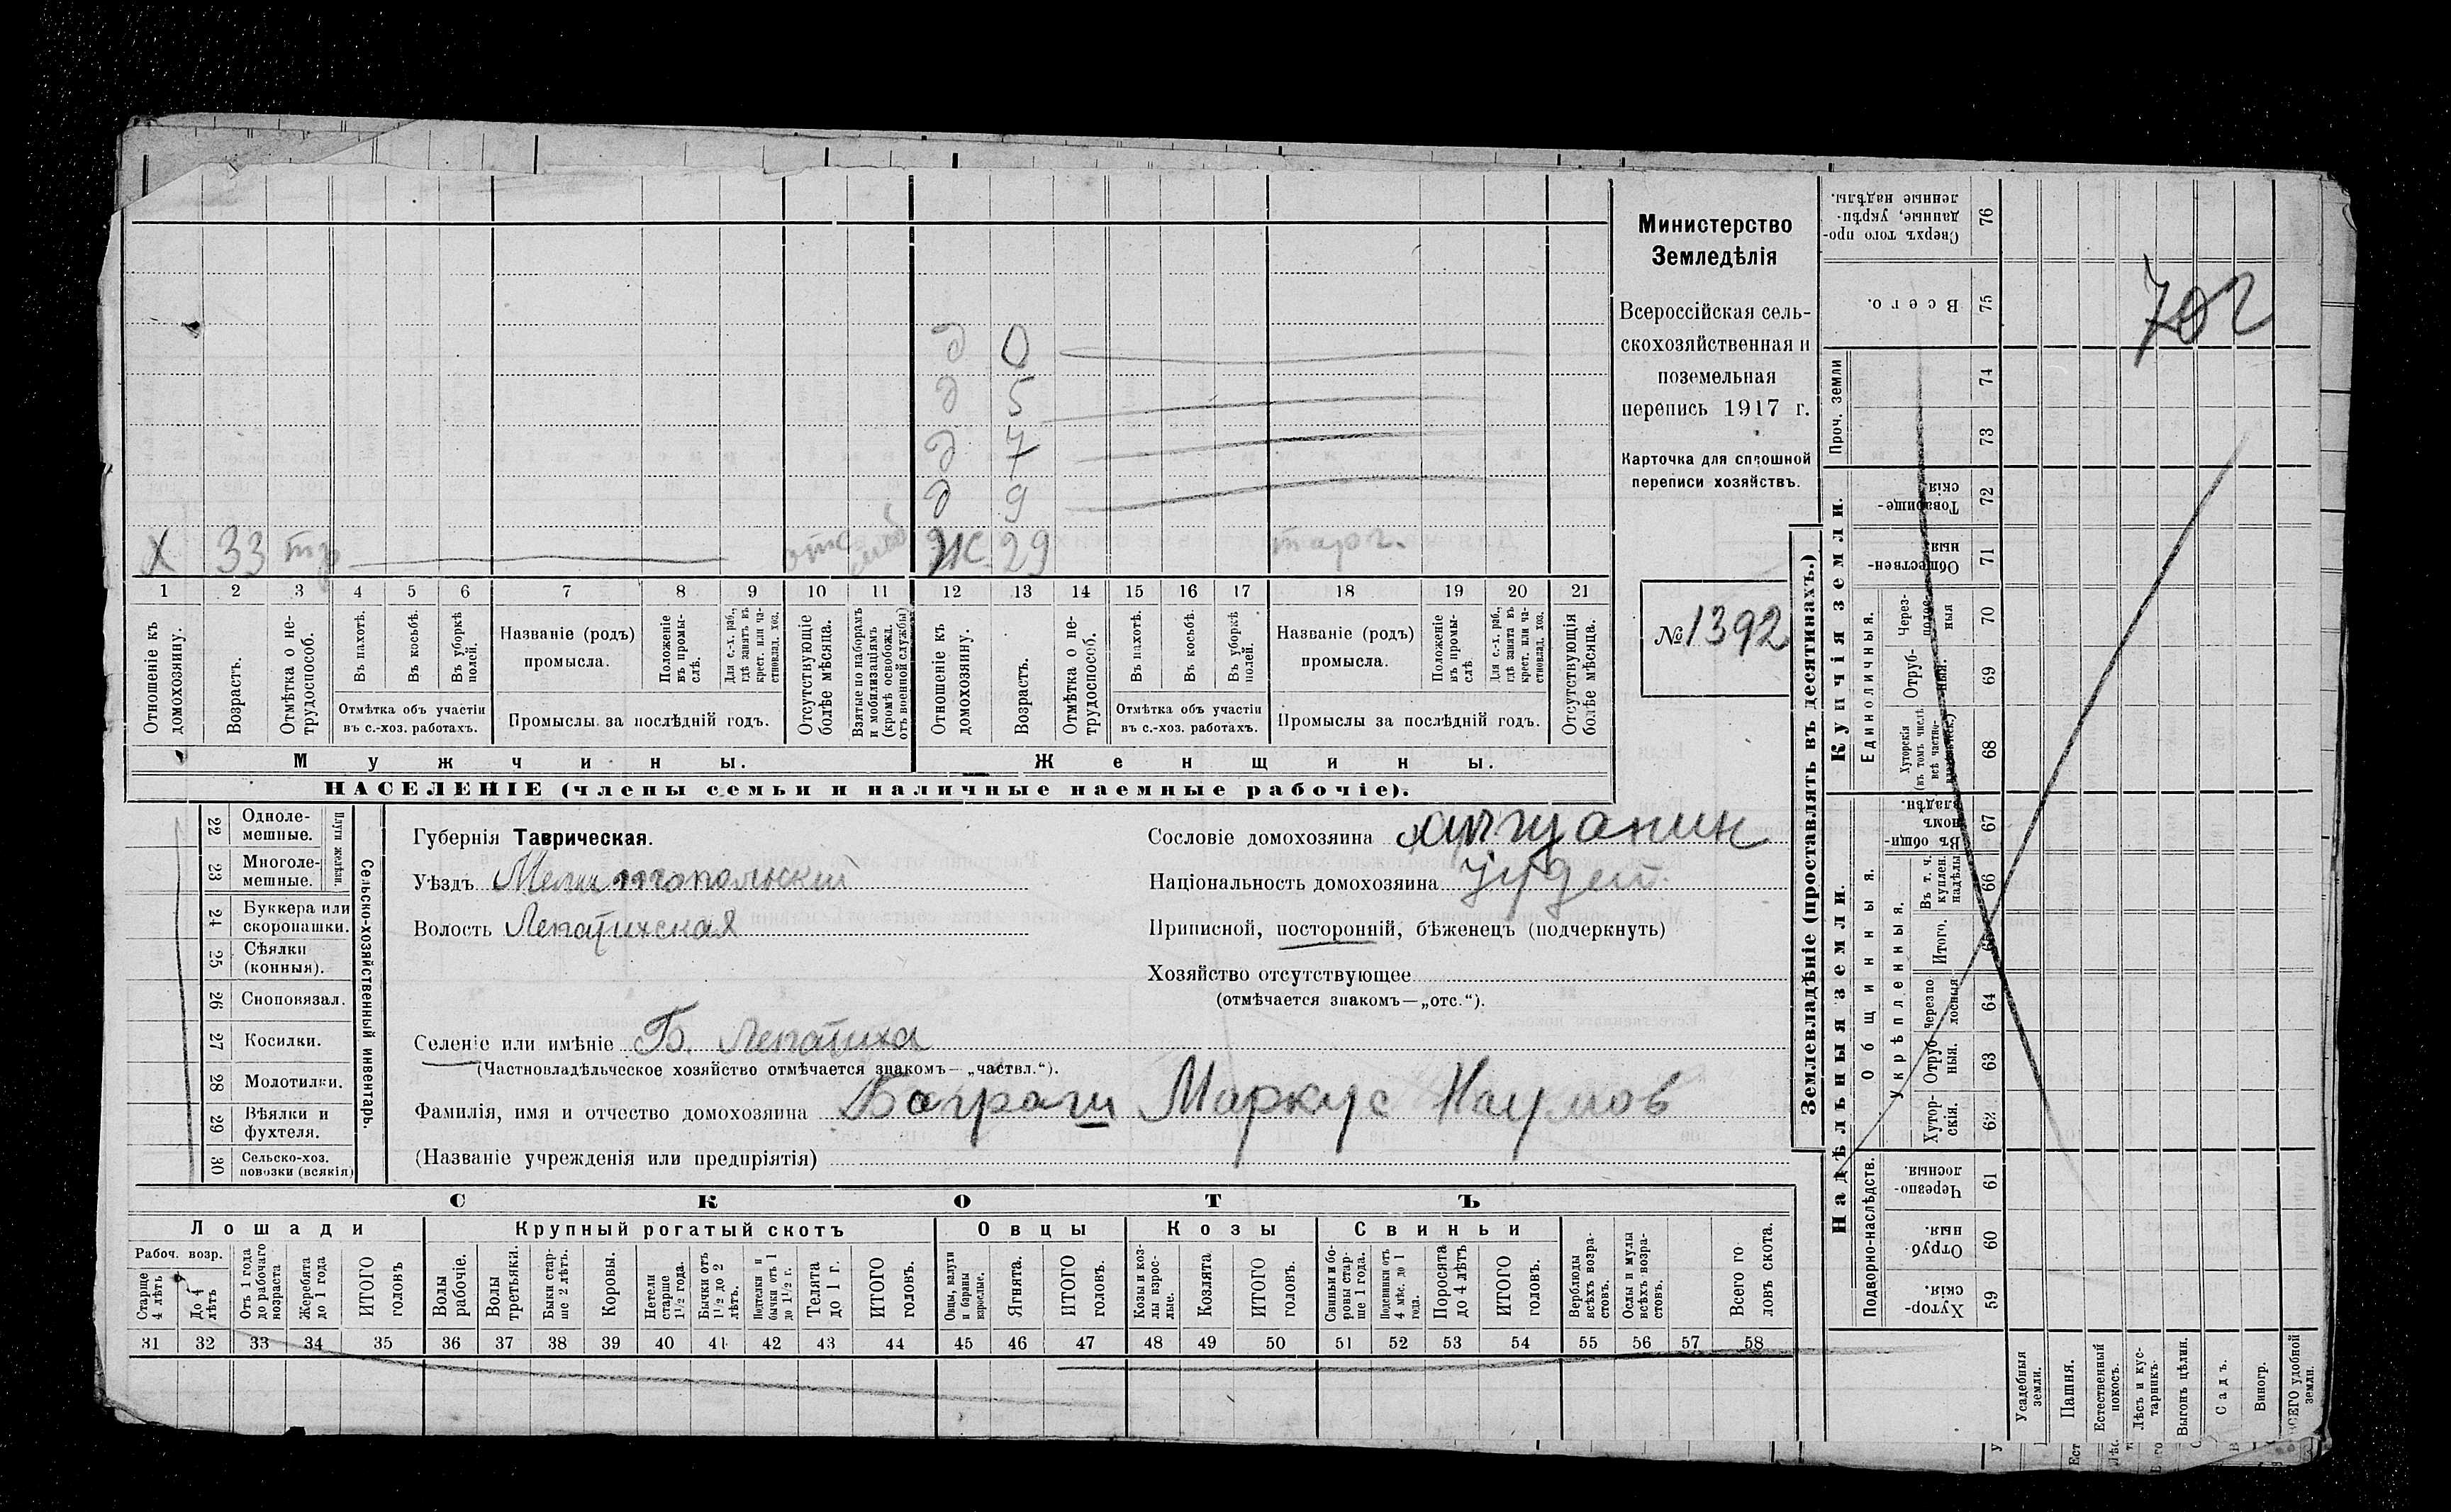 Министерство
Земледѣлія
Всероссійская сель-
скохозяйственная и
поземельная
перепись 1917 г.
Карточка для сплошной
переписи хозяйствъ.
№ 1392
702
д 0
д 5
д 7
д 9
Х 33 Ж 29 торг.
1 2 3 4 5 6 7 8 9 10 11 12 13 14 15 16 17 18 19 20 21
Отношеніе къ домохозяину.
Возрастъ.
Отмѣтка о не-трудоспособ.
Въ пахотѣ.
Въ косьбѣ.
Въ уборкѣ полей.
Отмѣтка объ участіи
въ с.-хоз. работахъ.
Названіе (родъ)
промысла.
Положеніе въ промы-слѣ.
Для с.-х. раб., гдѣ занятъ въ крест. или ча-стновлад. хоз.
Промыслы за послѣдній годъ.
Отсутствующіе болѣе мѣсяца.
Взятые по наборамъ и мобилизаціямъ (кромѣ освобожд. отъ военной службы)
Отношеніе къ домохозяину.
Возрастъ.
Отмѣтка о не-трудоспособ.
Въ пахотѣ.
Въ косьбѣ.
Въ уборкѣ полей.
Отмѣтка объ участіи
въ с.-хоз. работахъ.
Названіе (родъ)
промысла.
Положеніе въ промы-слѣ
Для с.-х. раб., гдѣ занята въ крест. или ча-стновлад. хоз.
Промыслы за послѣдній годъ.
Отсутствующія болѣе мѣсяца.
Мужчины. Женщины.
НАСЕЛЕНІЕ (члены семьи и наличные наемные рабочіе).
22 Одноле-мешные.
23 Многоле-мешные.
Плуги желѣзн.
24 Буккера или скоропашки.
25 Сѣялки (конныя).
26 Сноповязал.
27 Косилки.
28 Молотилки.
29 Вѣялки и фухтеля.
30 Сельско-хоз. повозки (всякія)
Сельско-хозяйственный инвентарь.
Губернія Таврическая.
Уѣздъ Мелитопольский
Волость Лепатихская
Селеніе или имѣніе Б. Лепатиха
(Частновладѣльческое хозяйство отмѣчается знакомъ—„частвл.“).
Фамилія, имя и отчество домохозяина Баграш Маркус Наумов
(Названіе учрежденія или предпріятія)
Сословіе домохозяина
Національность домохозяина Іудей.
Приписной, посторонній, бѣженецъ (подчеркнуть)
Хозяйство отсутствующее
(отмѣчается знакомъ—„отс.“).
СКОТЪ
Лошади Крупный рогатый скотъ Овцы Козы Свиньи
Рабоч. возр.
Старше 4 лѣтъ
До 4 лѣтъ
Отъ 1 года до рабочаго возраста
Жеребята до 1 года
ИТОГО головъ
Волы рабочіе.
Волы третьяки.
Быки стар-ше 2 лѣтъ.
Коровы.
Нетели старше 1½ года.
Бычки отъ 1½ до 2 лѣтъ.
Подтелки и бычки отъ 1 до 1½ г.
Телята до 1 г.
ИТОГО головъ.
Овцы, валухи и бараны взрослые.
Ягнята.
ИТОГО головъ.
Козы и коз-лы взрос-лые.
Козлята
ИТОГО головъ.
Свиньи и бо-ровы стар-ше 1 года.
Подсвинки отъ 4 мѣс. до 1 года.
Поросята до 4 лѣтъ
ИТОГО головъ.
Верблюды всѣхъ возра-стовъ.
Ослы и мулы всѣхъ возра-стовъ.
Всего го ловъ скота.
31 32 33 34 35 36 37 38 39 40 41 42 43 44 45 46 47 48 49 50 51 52 53 54 55 56 57 58
Землевладѣніе (проставлять въ десятинахъ.)
Надѣльныя земли. Купчія земли. Проч. земли
Подворно-наслѣдств.
Общинныя.
Укрѣпленныя.
Единоличныя.
Сверхъ того про-данные, укрѣп-ленные надѣлы. 76
Всего. 75
74
73
Товарище-скія 72
Обществен-ныя 71
Через-полос-ныя 70
Отруб-ныя. 69
Хуторскія (въ томъ числѣ всѣ частно-владѣльческ.) 68
Въ общин-номъ владѣн. 67
Въ т. ч. куплен. надѣлы 66
Итого. 65
Черезпо-лосныя 64
Отруб-ныя. 63
Хутор-скія. 62
Черезпо-лосныя. 61
Отруб-ныя. 60
Хутор-скія. 59
Усадебныя земли.
Пашня.
Естественный покосъ.
Лѣсъ и кус-тарникъ.
Выгонъ цѣлин.
Садъ.
Виногр.
ВСЕГО удобной земли.